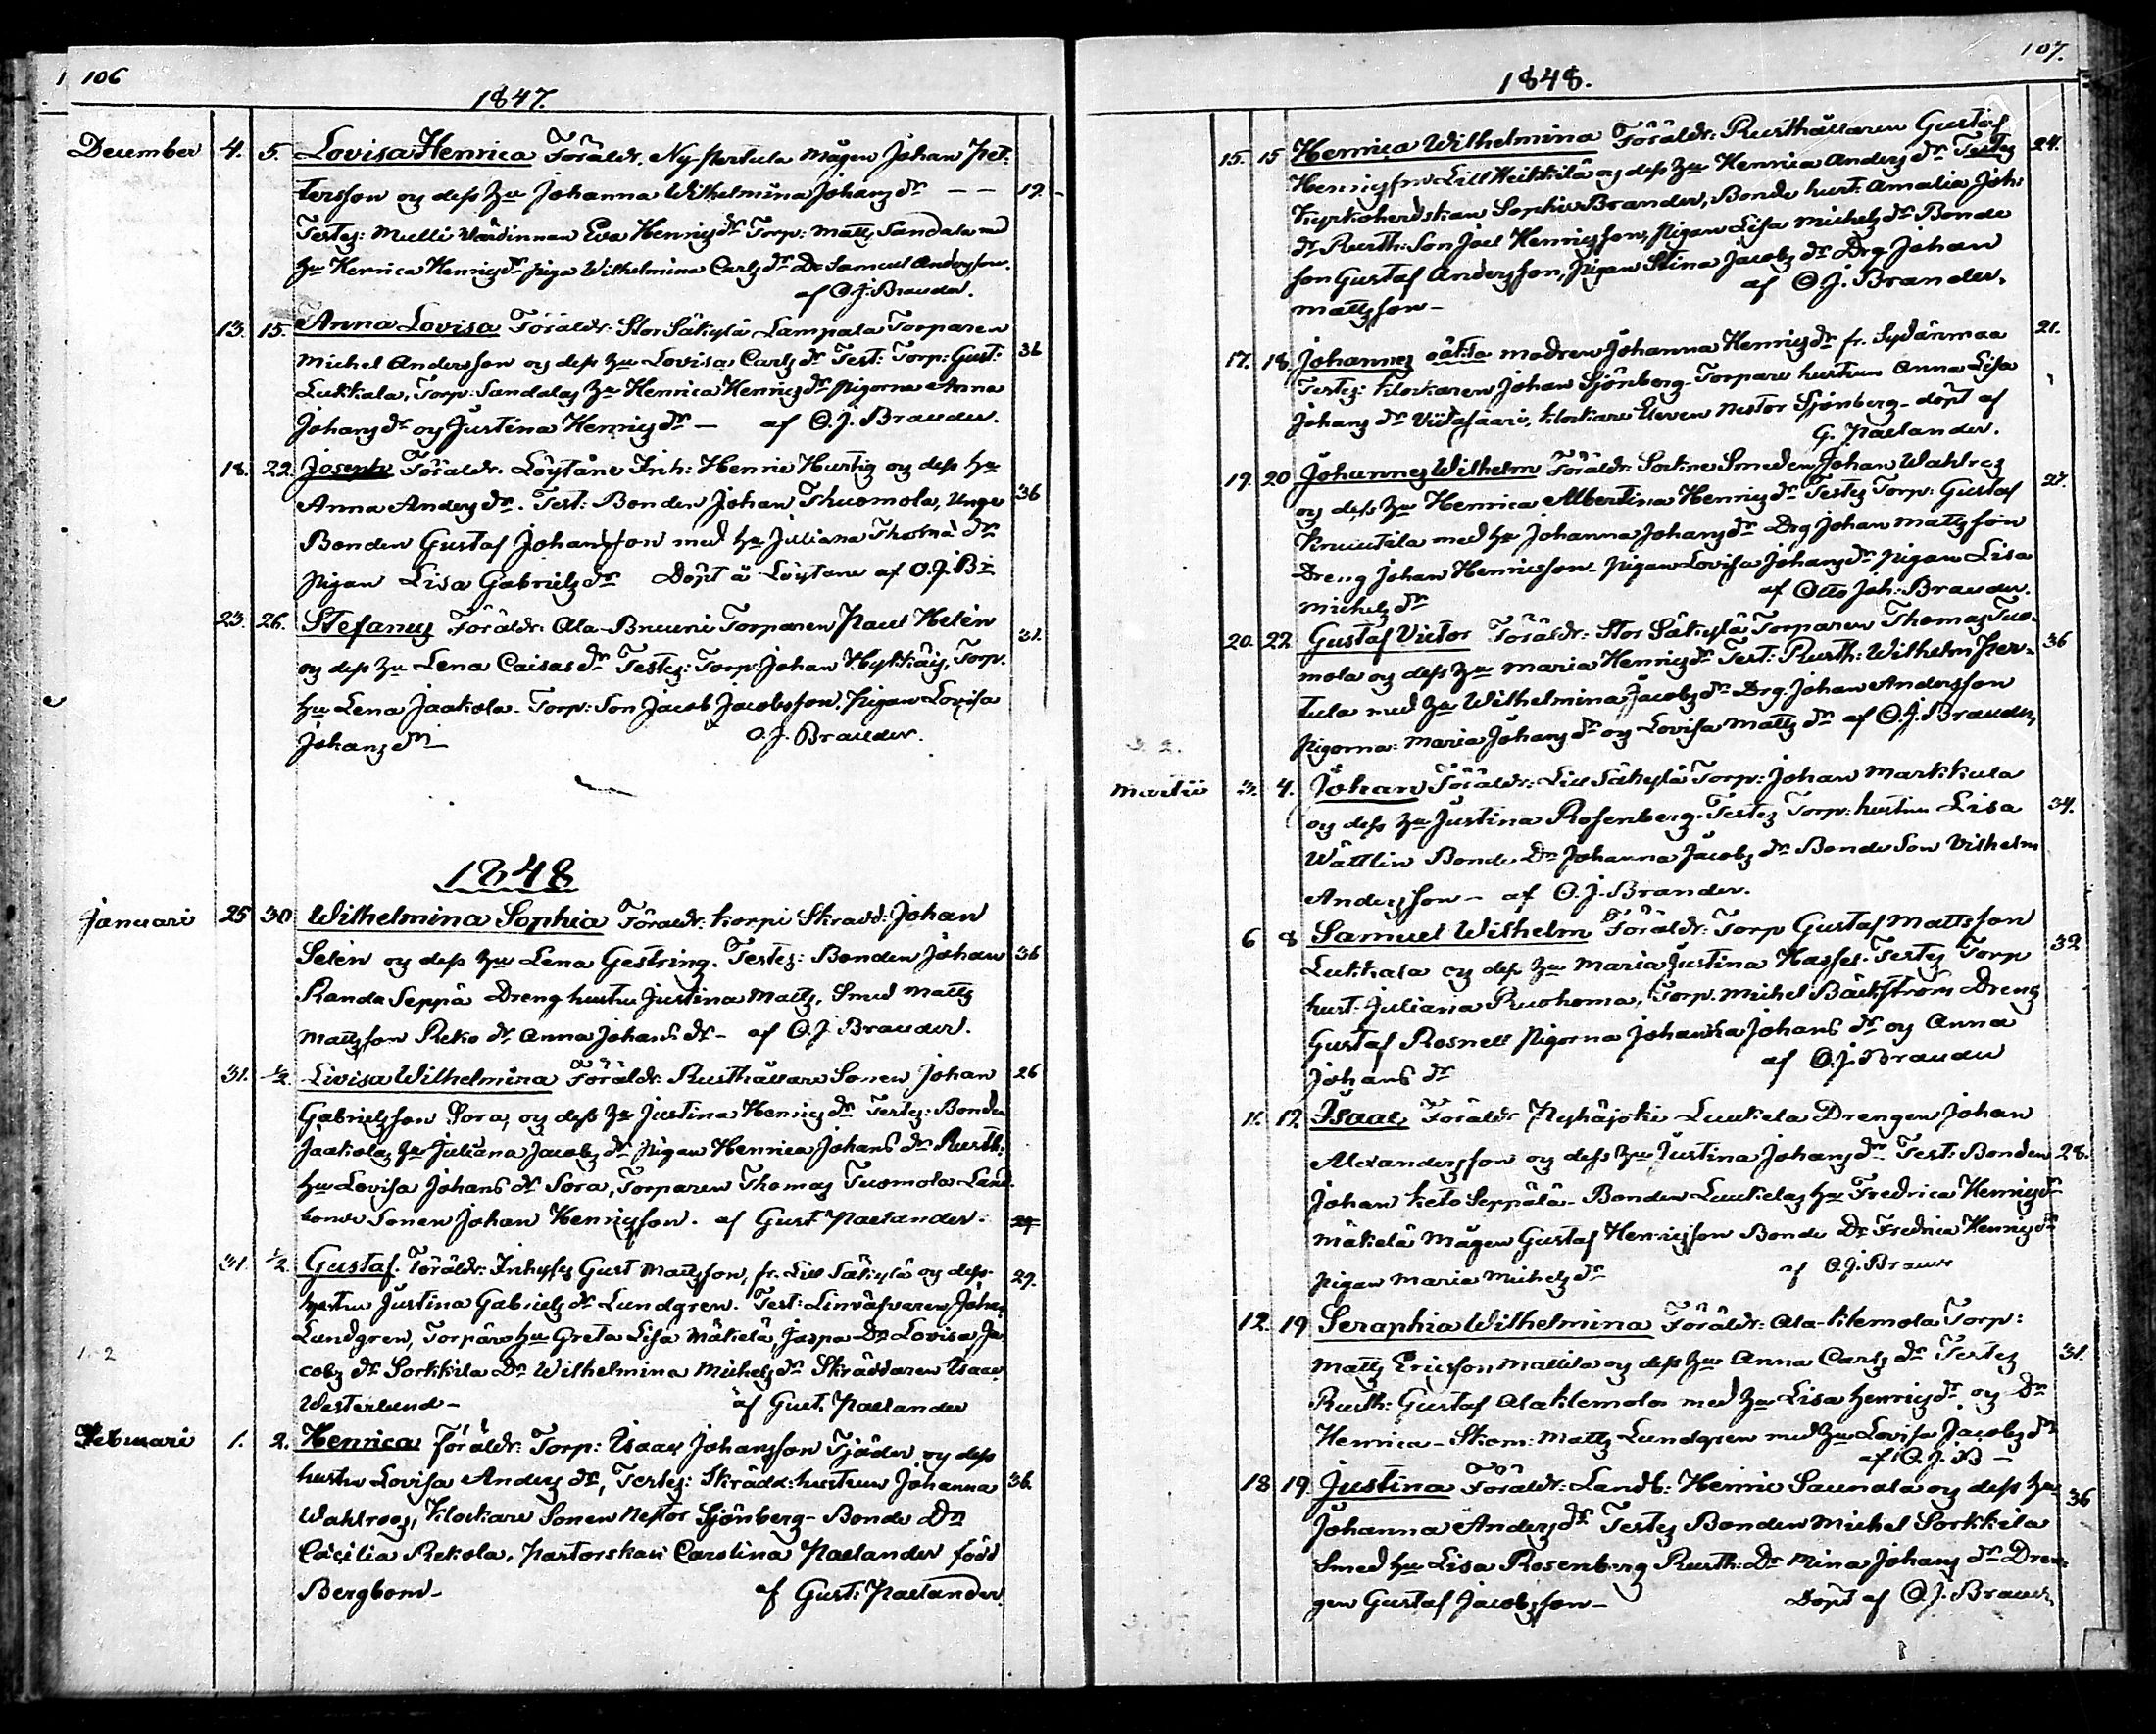 106
1847.
December 4. 5. Lovisa Henrica Föräldr. Ny-Pertula Mågen Johan Pet-
tersson og dess Hu Johanna Wilhelmina Johansdr — — 19.
Testes: Mulli Värdinnan Eva Henricsdr Torp: Matts Sandala med
Hu Henrica Henricsdr Piga Wilhelmina Carlsdr Dr Samuel Andersson.
af O.J. Brander.
13. 15. Anna Lovisa Föräldr. Stor Säkylä Lampala Torparen
Michel Andersson og dess Hu Lovisa Carlsdr Test: Torp: Gust: 36
Lukkala, Torp: Sandalas Hu Henrica Henricsdr Pigorna Anna
Johansdr og Justina Henricsdr — af O.J. Brander.
18. 22. Joseph Föräldr. Löytäne Inh: Henric Hurtig og dess Hu
Anna Andersdr. Test: Bonden Johan Thuomola, Unge 36
Bonden Gustaf Johansson med Hu Juliana Thoma dr
Pigan Lisa Gabrielsdr Döpt å Löytäne af O.J. Br
23. 26. Stefanus Föräldr. Ala-Bruuni Torparen Paul Helén
og dess Hu Lena Caisasdr Testes: Torp: Johan Hykkäis, Torp. 31.
Hu Lena Jaakola. Torp: Son Jacob Jacobsson, Pigan Lovisa
Johansdr — O.J. Brander.
1848
Januari 25 30 Wilhelmina Sophia Föräldr. Korpi Skrädd: Johan
Selén og dess Hu Lena Gestring. Testes: Bonden Johan 36
Randa Seppä Dreng hustru Justina Matts, Smed Matts
Mattsson Reko dr Anna Johansdr — af O.J. Brander.
31. ½. Livisa Wilhelmina Föräldr. Rusthållare Sonen Johan 26
Gabrielsson Sora, og dess Hu Justina Henricsdr Testes: Bonden
Jaakolas Hu Juliana Jacobsdr Pigan Henrica Johansdr Rusth:
Hu Lovisa Johansdr Sora, Torparen Thomas Tuomola Land
bonde Sonen Johan Henricsson. af Gust Paelander.
31. ½. Gustaf. Föräldr. Inhyses Gust Mattsson, fr. Lill Säkylä og dess 29.
hustru Justina Gabrielsdr Lundgren. Test: Linväfvaren Johan
Lundgren, Torpare Hu Greta Lisa Mäkelä, Jaspa Dr Lovisa Ja
cobsdr Sorkkila Dr Wilhelmina Michelsdr Skräddaren Isaac
Westerlund — af Gust. Paelander
Februari 1. 2. Henrica föräldr: Torp: Isaac Johansson Tjäder og dess
hustru Lovisa Andersdr, Testes: Skrädd: hustrun Johanna 36.
Wahlroos, Klockare Sonen Nestor Sjönberg — Bonde Dr
Cäcilia Rekola, Pastorskan Carolina Paelander född
Bergbom — af Gust: Paelander.
107.
1848.
15. 15 Henrica Wilhelmina Föräldr: Rusthållaren Gustaf 24.
Henricsson Lill Heikkilä og dess Hu Henrica Andersdr Testes
Kyrkoherdskan Sophie Brander, Bonde hust: Amalia Joh:
dr Rusth: Son Joel Henricsson, Pigan Lisa Michelsdr Bonde
son Gustaf Andersson, Pigan Stina Jacobsdr Drg Johan
Mattsson — af O.J. Brander.
17. 18. Johannes oäkta modren Johanna Henricsdr fr. Sydänmaa 21.
Testes: Klockaren Johan Sjönberg Torpare hustrun Anna Lisa
Johansdr Viidasaari, Klockare Eleven Nestor Sjönberg — döpt af
G. Paelander.
19. 20 Johannes Wilhelm Föräldr. Smeden Johan Wahlros
og dess Hu Henrica Albertina Henricsdr Testes Torp: Gustaf 27.
med Hu Johanna Johansdr Drg Johan Mattsson
Dreng Johan Henricsson Pigan Lovisa Johansdr Pigan Lisa
Michelsdr af Otto Joh: Brander.
20. 22 Gustaf Victor Föräldr: Stor Säkylä Torparen Thomas Tuo-
mola og dess Hu Maria Henricsdr Test: Rusth: Wilhelm Per- 36
tula med Hu Wilhelmina Jacobsdr Drg. Johan Andersson
Pigorna: Maria Johansdr og Lovisa Mattsdr af O.J. Brander,
Martii 3. 4. Johan Föräldr: Lill Säkylä Torp: Johan Markkula
og dess Hu Justina Rosenberg. Testes Torp: hustru Lisa 34.
Wättlin Bonde Dr Johanna Jacobsdr Bonde Son Vilhelm
Andersson — af O.J. Brander.
6 8 Samuel Wilhelm Föräldr: Torp Gustaf Mattsson
Lukkala og dess Hu Maria Justina Hassel. Testes Torp 32
hust: Juliana Ruohoma, Torp. Michel Bäckström Dreng
Gustaf Rosnell Pigorna Johanna Johansdr og Anna
Johansdr af O.J. Brander
11. 12. Isaac Föräldr Pyhäjoki Luukela Drengen Johan
Alexandersson og dess Hu Justina Johansdr Test: Bonden 28.
Johan Keto Seppälä — Bonden Luukelas Hu Fredrica Henricsdr
Mäkelä Mågen Gustaf Henricsson Bonde Dr Fredrica Henricsdr
Pigan Maria Michelsdr af O.J. Brander
12. 19 Seraphia Wilhelmina Föräldr: Ala-Klemola Torp:
Matts Ericsson Mattila og dess Hu Anna Carlsdr Testes 31.
Rusth: Gustaf Alaklemola med Hu Lisa Henricsdr og Dr
Henrica — Skom: Matts Lundgren med Hu Lovisa Jacobsdr
af O.J.B —
18 19 Justina Föräldr: Landb: Henric Saunala og dess Hu 36
Johanna Andersdr Testes Bonden Michel Sorkkila
Smed Hu Lisa Rosenberg Rusth: Dr Mina Johansdr Dren-
gen Gustaf Jacobsson — Döpt af O.J. Brander